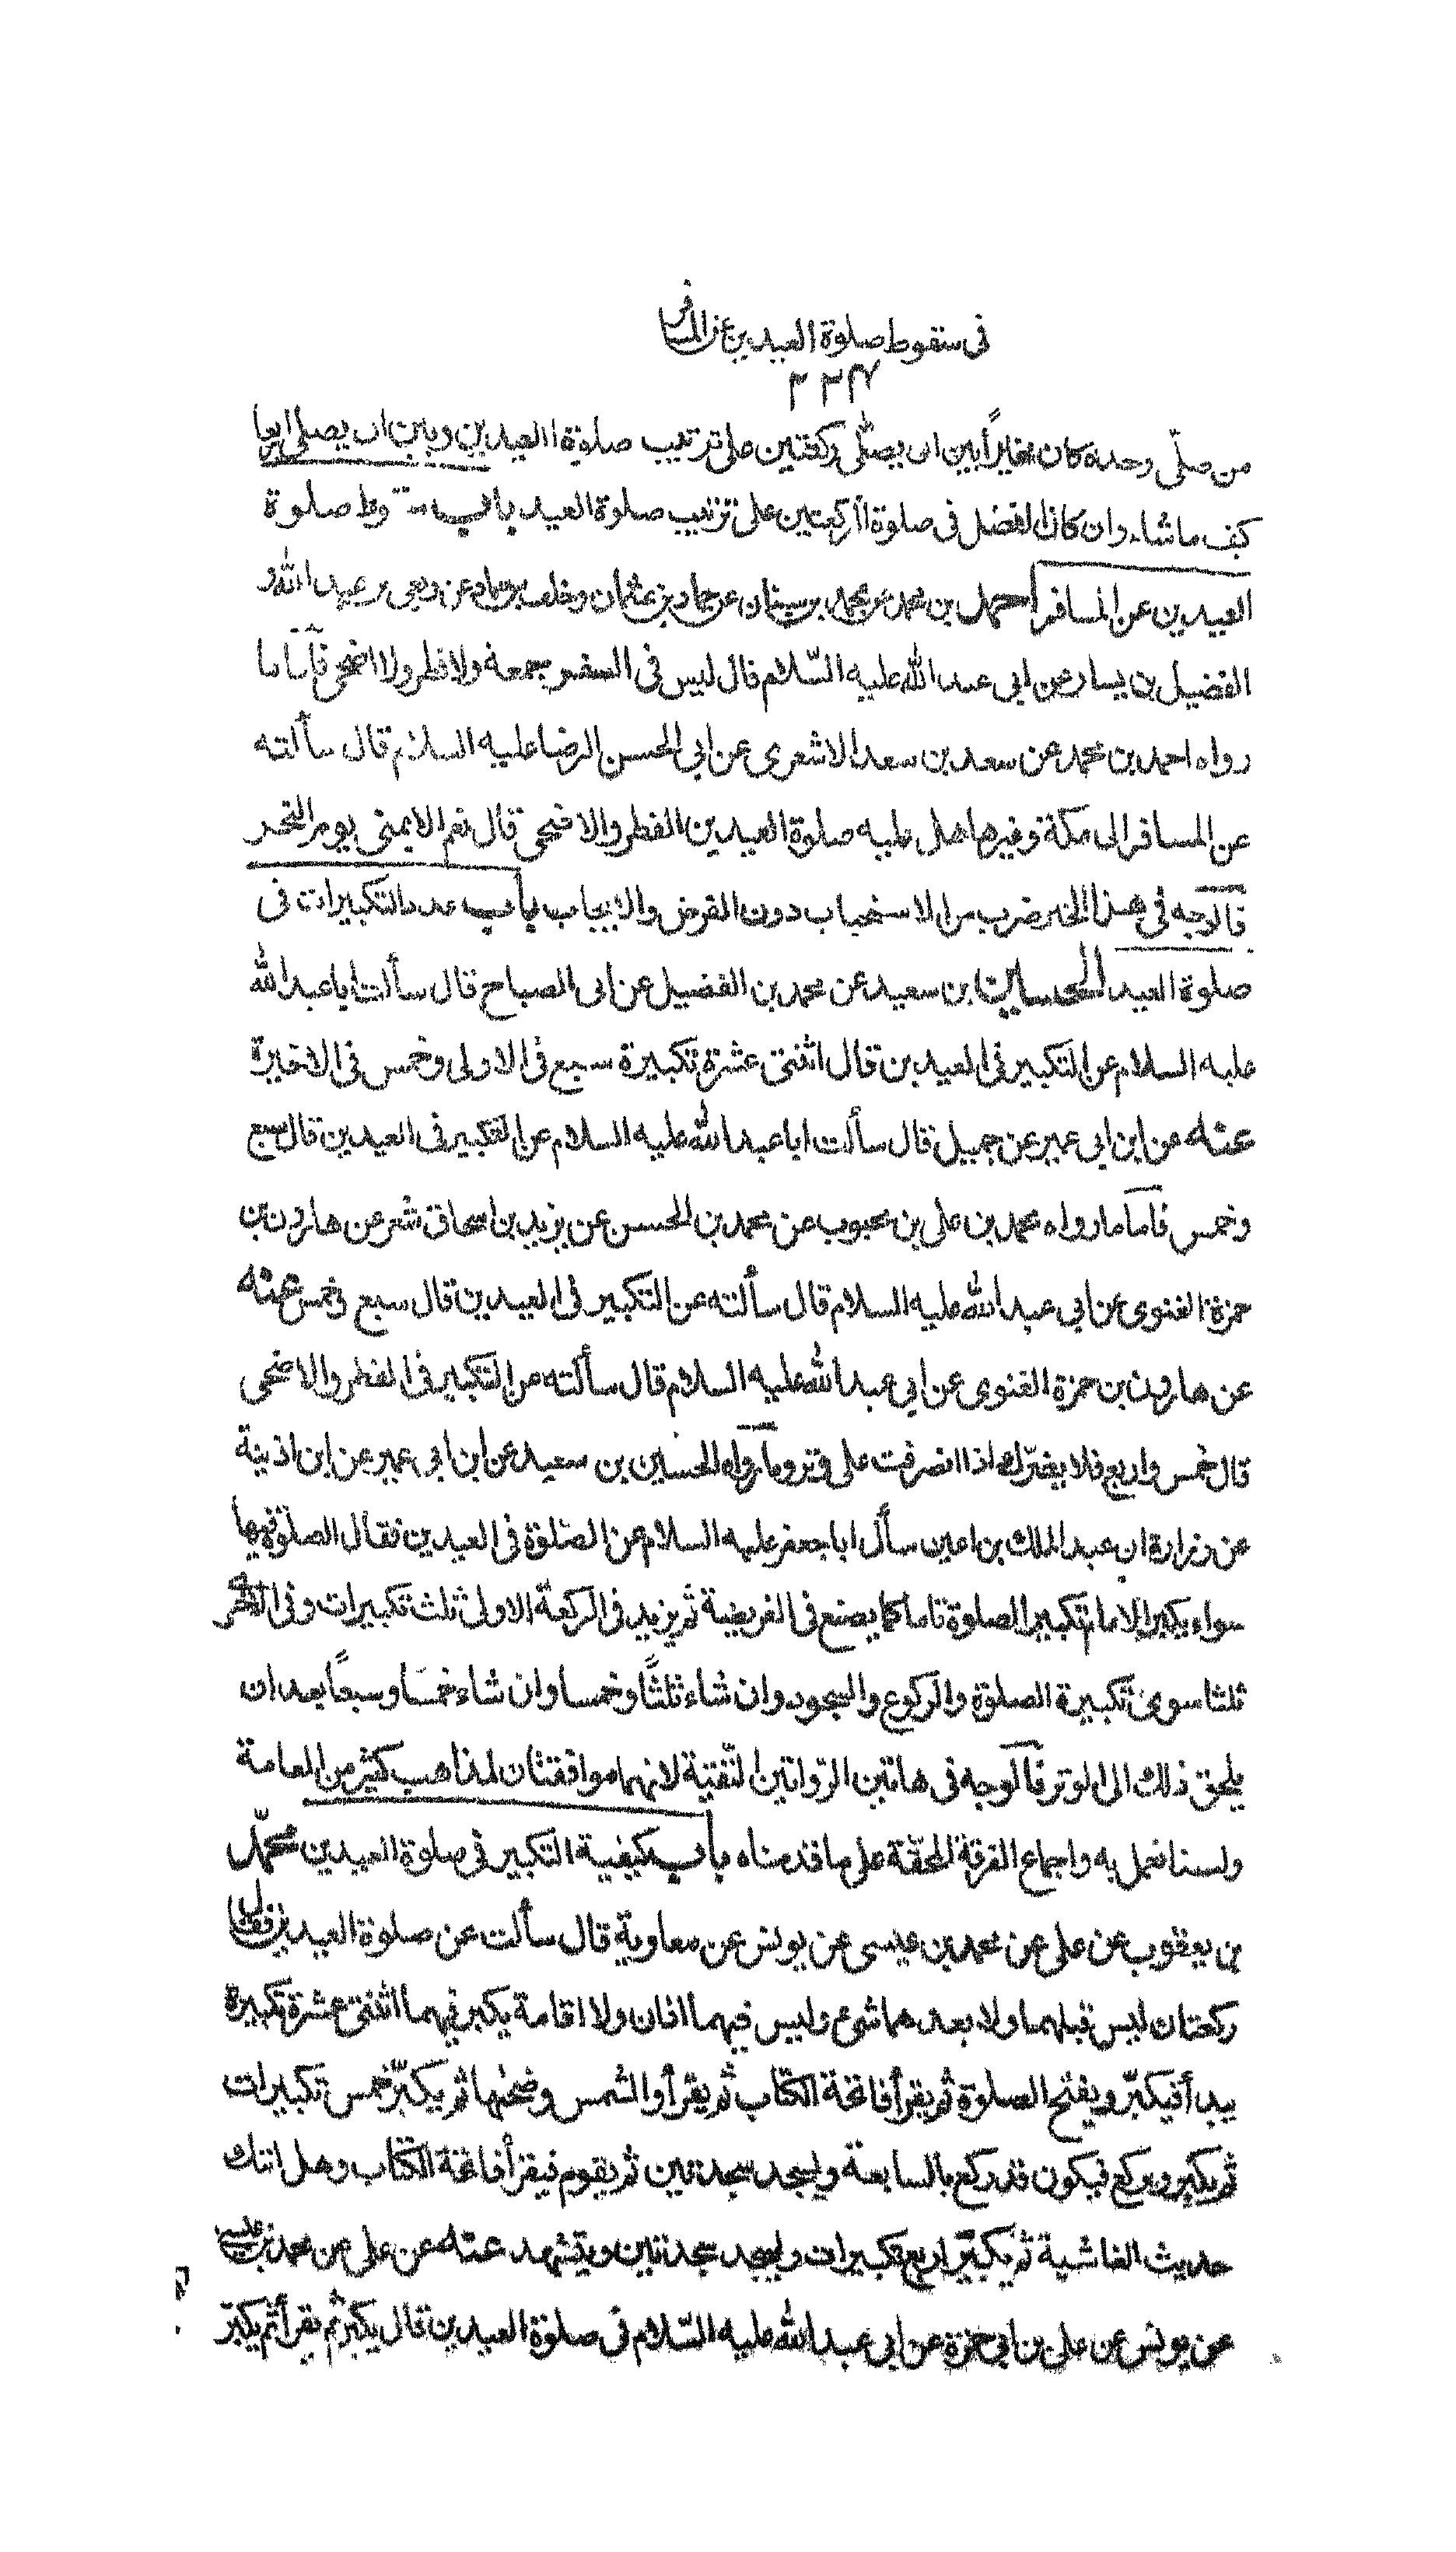 فى سقوط صلوة العيدين عن المسافر
٢٢٤
من صلّى وحده كان مخيراً بين ان يصلّى ركعتين على ترتيب صلوة العيدين وبين ان يصلى اربعا
كيف ما شاء وان كان الفضل فى صلوة الركعتين على ترتيب صلوة العيد باب سقوط صلوة
العيدين عن المسافر احمد بن محمد عن محمد بن سنان عن حماد بن عثمان وخلف بن حماد عن ربعى بن عبد الله و
الفضيل بن يسار عن ابى عبد الله عليه السّلام قال ليس فى السفر جمعة ولا فطر ولا اضحى فامّا ما
رواه احمد بن محمد عن سعد بن سعد الاشعرى عن ابى الحسن الرضا عليه السلام قال سألته
عن المسافر الى مكة وغيرها هل عليه صلوة العيدين الفطر والاضحى قال نعم الا بمنى يوم النحر
فالوجه فى هذا الخبر ضرب من الاستحباب دون الفرض والايجاب باب عدد التكبيرات فى
صلوة العيد الحسين بن سعيد عن محمد بن الفضيل عن ابى الصباح قال سألت ابا عبد الله
عليه السلام عن التكبير فى العيدين قال اثنتى عشرة تكبيرة سبع فى الاولى وخمس فى الاخيرة
عنه عن ابن ابى عمير عن جميل قال سألت ابا عبد الله عليه السلام عن التكبير فى العيدين قال سبع
وخمس فاما ما رواه محمد بن على بن محبوب عن محمد بن الحسن عن يزيد بن اسحاق شعر عن هارون بن
حمزة الغنوى عن ابى عبد الله عليه السلام قال سألته عن التكبير فى العيدين قال سبع وخمس عنه
عن هارون بن حمزة الغنوى عن ابى عبد الله عليه السلام قال سألته عن التكبير فى الفطر والاضحى
قال خمس واربع فلا يضرّك اذا انصرفت على وتر وما رواه الحسين بن سعيد عن ابن ابى عمير عن ابن اذينة
عن زرارة ان عبد الملك بن اعين سأل ابا جعفر عليه السلام عن الصلوة فى العيدين فقال الصلوة فيهما
سواء يكبر الامام تكبير الصلوة تاما كما يصنع فى الفريضة ثم يزيد فى الركعة الاولى ثلث تكبيرات وفى الاخرى
ثلثا سوى تكبيرة الصلوة والركوع والسجود وان شاء ثلثًا وخمسا وان شاء خمسا وسبعًا بعد ان
يلحق ذلك الى الوتر فالوجه فى هاتين الرّوايتين التّقية لانهما موافقتان لمذاهب كثير من العامة
ولسنا نعمل به واجماع الفرقة المحقّة على ما قدمناه باب كيفية التكبير فى صلوة العيدين محمّد
بن يعقوب عن على عن محمد بن عيسى عن يونس عن معاوية قال سألت عن صلوة العيدين فقال
ركعتان ليس قبلهما ولا بعدهما شىء وليس فيهما اذان ولا اقامة يكبر فيهما اثنتى عشرة تكبيرة
يبدأ فيكبّر ويفتح الصلوة ثم يقرأ فاتحة الكتاب ثم يقرأ والشمس وضحيها ثم يكبّر خمس تكبيرات
ثم يكبر ويركع فيكون قد ركع بالسابعة ويسجد سجدتين ثم يقوم فيقرأ فاتحة الكتاب وهل اتيك
حديث الغاشية ثم يكبّر اربع تكبيرات ويسجد سجدتين ويتشهد عنه عن على عن محمد بن عيسى
عن يونس عن على بن ابى حمزة عن ابى عبد الله عليه السّلام فى صلوة العيدين قال يكبر ثم يقرأ ثم يكبّر